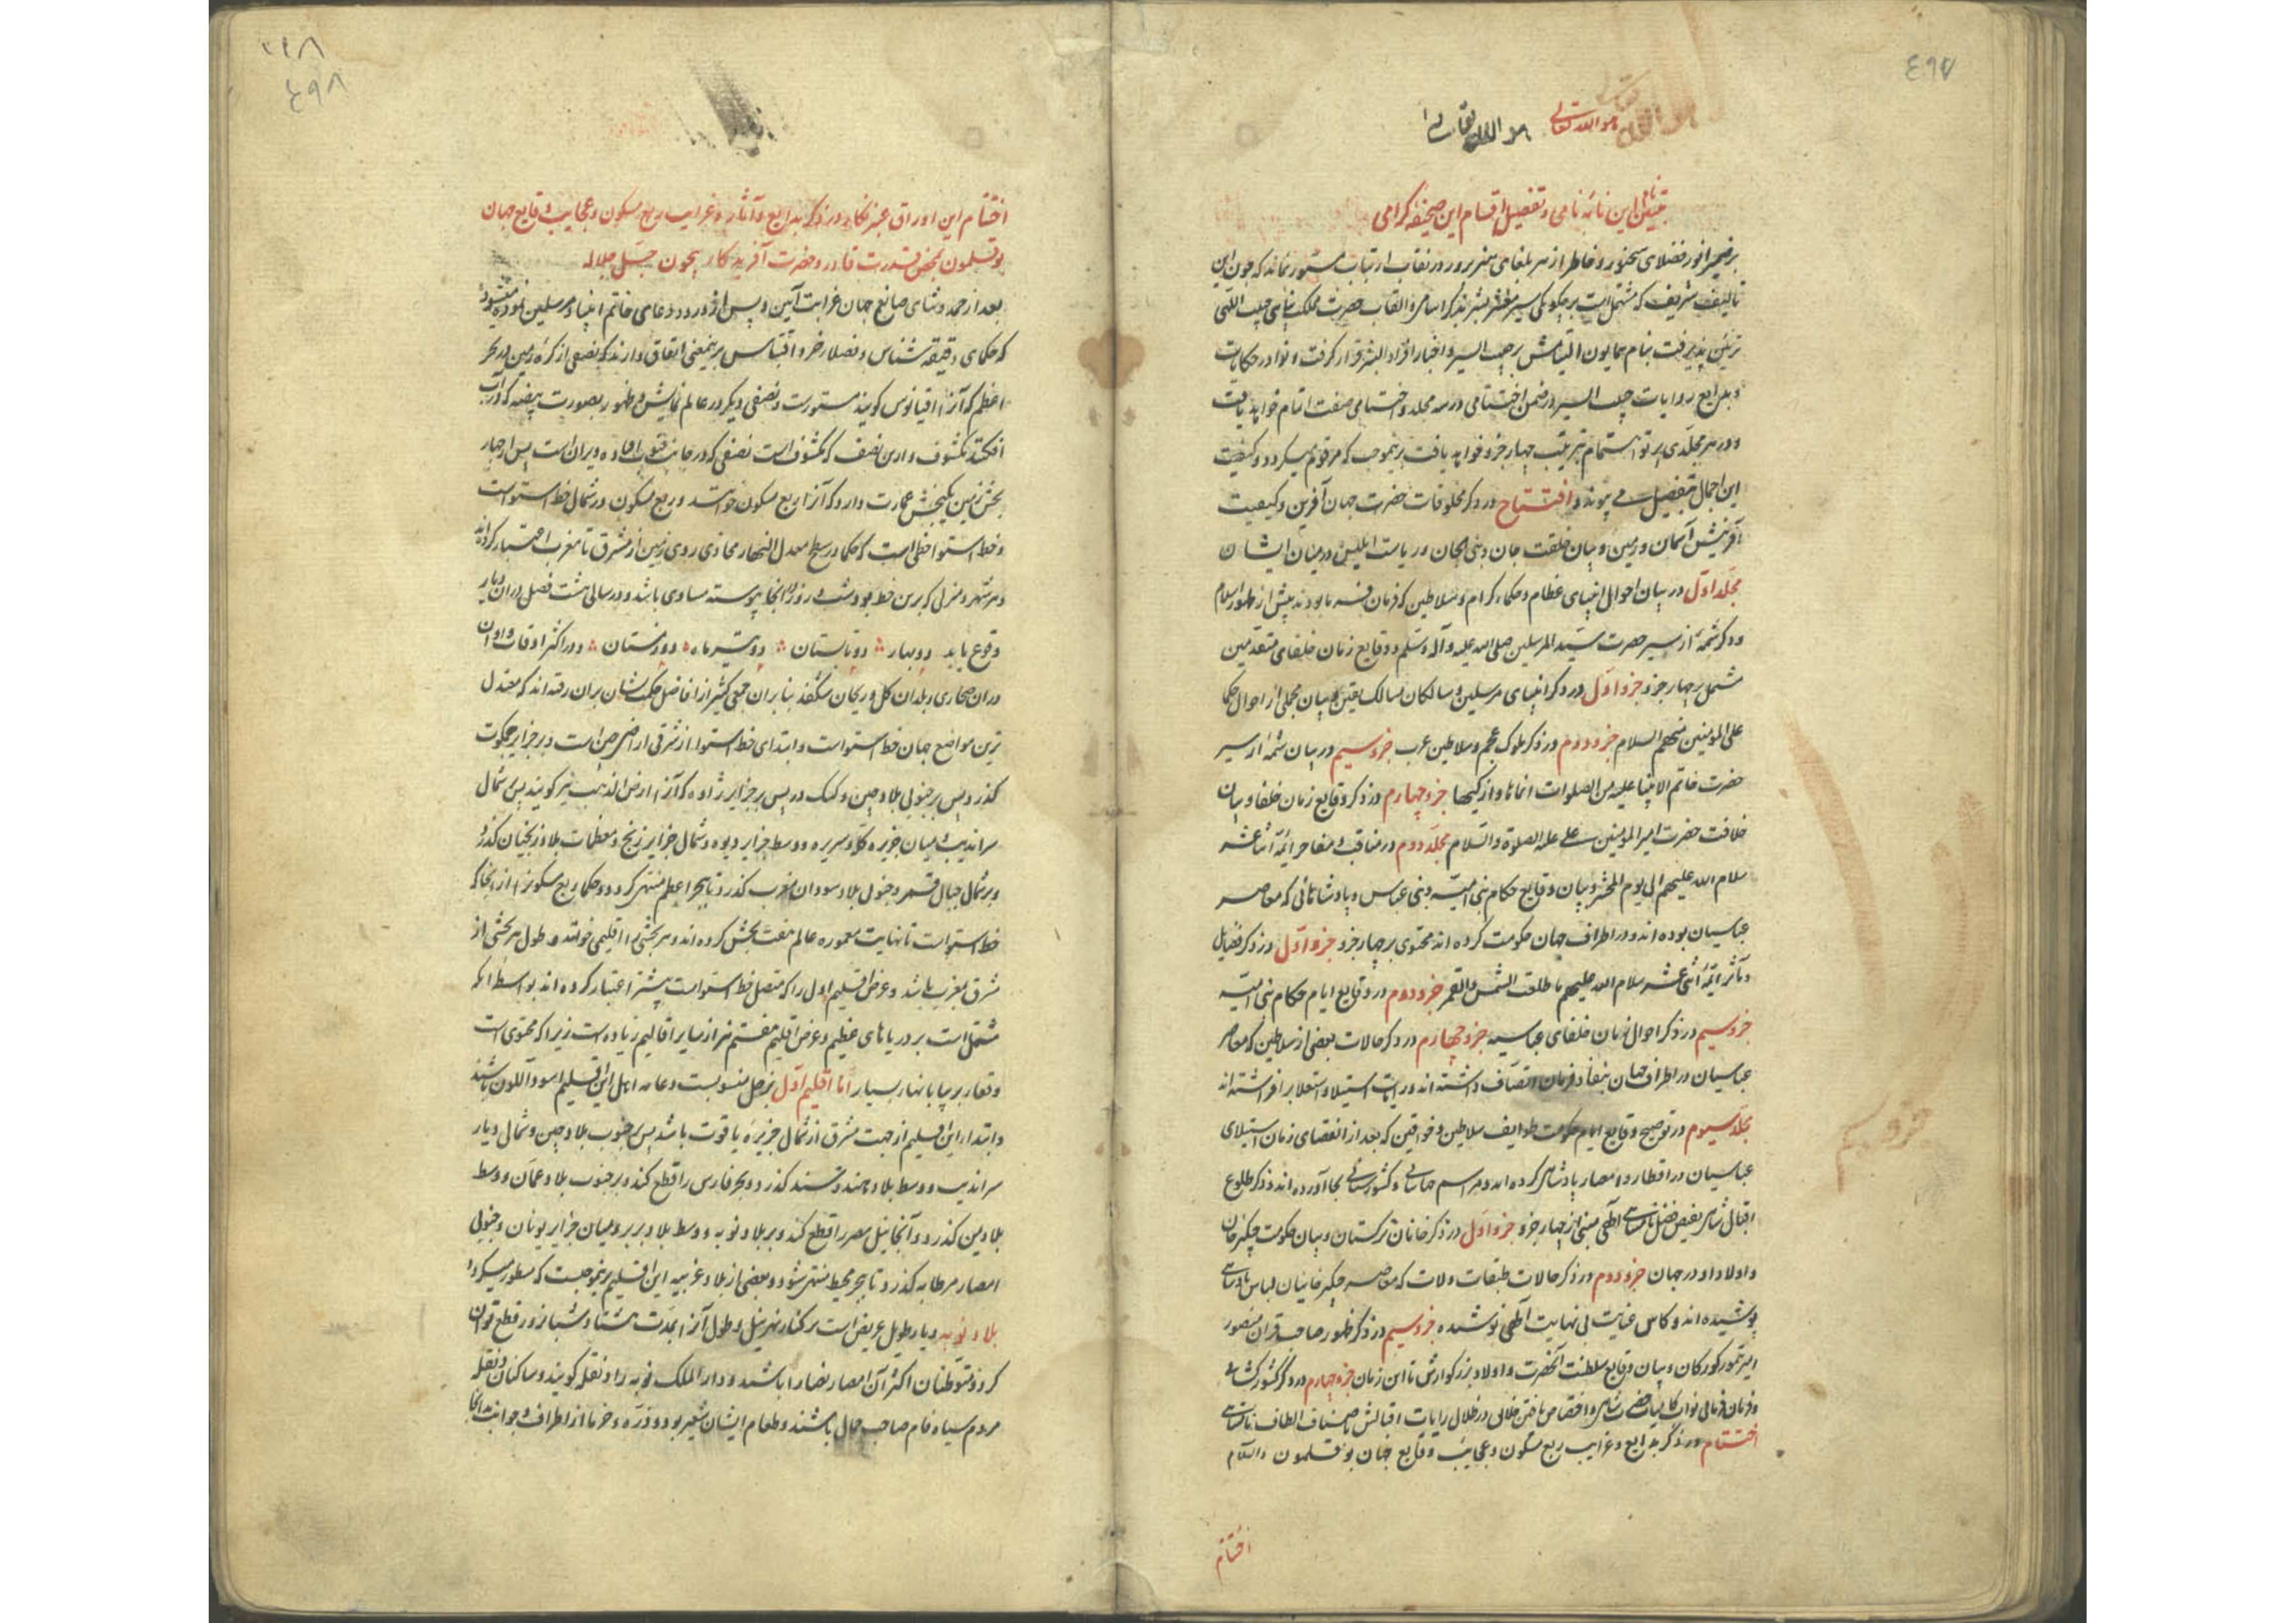 ٤٩٧
هو الله تعالی
هو الله تعالی
این نامهٔ نامی و تفصیل اقسام این صحیفه کرامی
بر ضمیر انور فضلای سخنور و خاطر ازهر بلغای هنرپرور در نقاب ارتیاب مستور نماند که چون این
تالیف شریف که مشتمل است بر چکونکی سیر معشر بشر بذکر اسامی و القاب حضرت مملکت پناهی حبیب اللهی
تزیین پذیرفت بنام همایون التیامش بر حبیب السیر و اخبار افراد البشر قرار کرفت و نوادر حکایات
و بدایع روایات حبیب السیر در ضمن افتتاحی و سه مجلد و اختتامی صفت اتمام خواهد یافت
و در هر مجلدی پرتو اهتمام بترتیب چهار جزو خواهد یافت برینموجب که مرقوم میکردد و کیفیت
این اجمال بتفصیل می پیوندد افتتاح در ذکر مخلوقات حضرت جهان آفرین و کیفیت
آفرینش آسمان و زمین و بیان خلقت جان و بنی الجان و ریاست ابلیس در میان ایشان
مجلد اول در بیان احوال انبیای عظام و حکماء کرام و سلاطین که فرمان فرما بودند پیش از ظهور اسلام
و ذکر شمهٔ از سیر حضرت سید المرسلین صلی الله علیه و آله و سلم و وقایع زمان خلفای متقدمین
مشتمل بر چهار جزو جزو اول در ذکر انبیای مرسلین و سالکان مسالک یقین و بیان مجملی از احوال حکما
علی المومنین منهم السلام جزو دوم در ذکر ملوک عجم و سلاطین عرب جزو سیم در بیان شمهٔ از سیر
حضرت خاتم الانبیا علیه من الصلوات انماها و ازکیها جزو چهارم در ذکر وقایع زمان خلفا و بیان
خلافت حضرت امیر المومنین علی علیه الصلوة و السلام مجلد دوم در مناقب و مفاخر ائمه اثنا عشر
سلام الله علیهم الی یوم المحشر و بیان وقایع حکام بنی امیه و بنی عباس و پادشاهانی که معاصر
عباسیان بوده اند و در اطراف جهان حکومت کرده اند محتوی بر چهار جزو جزو اول در ذکر فضایل
و مآثر ائمه اثنی عشر سلام الله علیهم ما طلعت الشمس و القمر جزو دوم در وقایع ایام حکام بنی امیه
جزو سیم در ذکر احوال زمان خلفای عباسیه جزو چهارم در ذکر حالات بعضی از سلاطین که معاصر
عباسیان در اطراف جهان بنفاذ فرمان اتصاف داشته اند و رایت استیلا و استعلا برافراشته اند
مجلد سیوم در توضیح وقایع ایام حکومت طوایف سلاطین و خواقین که بعد از انقضای زمان استیلای
عباسیان در اقطار و امصار پادشاهی کرده اند و مراسم جهانبانی و کشورستانی بجا آورده اند و ذکر طلوع
اقبال شاهی بفیض فضل نامتناهی الهی مبنی از چهار جزو جزو اول در ذکر خانان ترکستان و بیان حکومت چنکیز خان
و اولاد او در جهان جزو دوم در ذکر حالات طبقات ولات که معاصر چنکیز خانیان لباس پادشاهی
پوشیده اند و کاس عنایت بی نهایت الهی نوشیده جزو سیم در ذکر ظهور صاحب قران منصور
امیر تیمور کورکان و بیان وقایع سلطنت آنحضرت و اولاد بزرکوارش تا این زمان جزو چهارم در ذکر کشورکشائی
و فرمان فرمائی نواب کامیاب حضرت شاهی و اختصاص یافتن خلائق در ظلال رایات اقبالش باصناف الطاف نامتناهی
اختتام در ذکر بدایع و غرایب ربع مسکون و عجایب وقایع جهان بوقلمون والسلام
اختتام
جزو سیم
٤٩٨
اختتام این اوراق عنبر نکار در ذکر بدایع و آثار و غرایب ربع مسکون و عجایب وقایع جهان
بوقلمون بمحض قدرت قادر و حضرت آفریدکار بیچون جل جلاله
بعد از حمد و ثنای صانع جهان غرابت آیین و پس از ورد درود و دعای خاتم انبیاء و مرسلین نموده میشود
که حکمای دقیقه شناس و فضلاء خرد اقتباس برینمعنی اتفاق دارند که نصفی از کره زمین در بحر
اعظم که آنرا اقیانوس کویند مستورست و نصفی دیکر در عالم نمایش و ظهور بصورت بیضه که در آب
افکنند مکشوف و ازین نصف که مکشوف است نصفی که در جانب جنوب افتاده ویران است پس از چهار
بخش زمین یکبخش عمارت دارد که آنرا ربع مسکون خوانند و ربع مسکون در شمال خط استواست
و خط استوا خطی است که حکما در سطح معدل النهار محاذی روی زمین از مشرق تا مغرب اعتبار کرده اند
و هر شهر و منزلی که برین خط بود شب و روز آنجا پیوسته مساوی باشد و در سالی هشت فصل در ان دیار
وقوع یابد دو بهار دو تابستان دو تیرماه دو زمستان و در اکثر اوقات و اوان
در ان صحاری و بلدان کل و ریحان شکفد بنابران جمعی کثیر از افاضل حکمت نشان بران رفته اند که معتدل
ترین مواضع جهان خط استواست و ابتدای خط استوا از شرقی اراضی چین است و بر جزایر جمکوت
کذرد پس بر جنوبی بلاد چین و کنک در پس بر جزایر زاوه که آنرا ارض الذهب نیز کویند پس شمال
سراندیب و میان جزیره کله و سریره و وسط جزایر دیوه و شمال جزایر زنج و معظمات بلاد زنجیان کذرد
و بر شمال جبال قمر و جنوب بلاد سودان مغرب کذرد تا ببحر اعظم منتهی کردد و حکما ربع مسکونرا از آنجا که
خط استواست تا نهایت معموره عالم هفت بخش کرده اند و هر بخشی را اقلیمی خوانند و طول هر بخشی از
مشرق بمغرب باشد و عرض اقلیم اول را که متصل خط استواست بیشتر اعتبار کرده اند بواسطه آنکه
مشتمل است بر دریاهای عظیم و عرض اقلیم هفتم نیز از سایر اقالیم زیاده است زیرا که محتوی است
و بسیار اما اقلیم اول بزحل منسوبست و عامه اهل این اقلیم اسود اللون باشند
و ابتداء این اقلیم از جهت مشرق از شمال جزیره یاقوت باشد پس جنوب بلاد چین و شمالی دیار
سراندیب و وسط بلاد هند و سند کذرد و بحر فارس را قطع کند و بر جنوب بلاد عمان و وسط
بلاد یمن کذرد و از آنجا نیل مصر را قطع کند و بر بلاد نوبه و وسط بلاد بربر و میان جزایر یونان و جنوبی
امصار مرطانه کذرد تا ببحر محیط منتهی شود و بعضی از بلاد غریبه این اقلیم برینموجبست که مسطور میکردد
بلاد نوبه دیار طویل عریض است بر کنار نهر نیل و طول آنرا بمدت هشتاد شبانروز قطع توان
کرد و متوطنان اکثر آن امصار نصارا باشند و دار الملک نوبه را دنقله کویند و ساکنان دنقله
مردم سیاه فام صاحب جمال باشند و طعام ایشان شعیر بود و ذره و خرما از اطراف و جوانب بدانجا